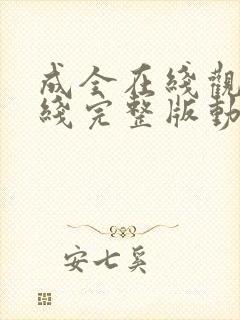 成全在綫觀
綫完整版動
安七奚